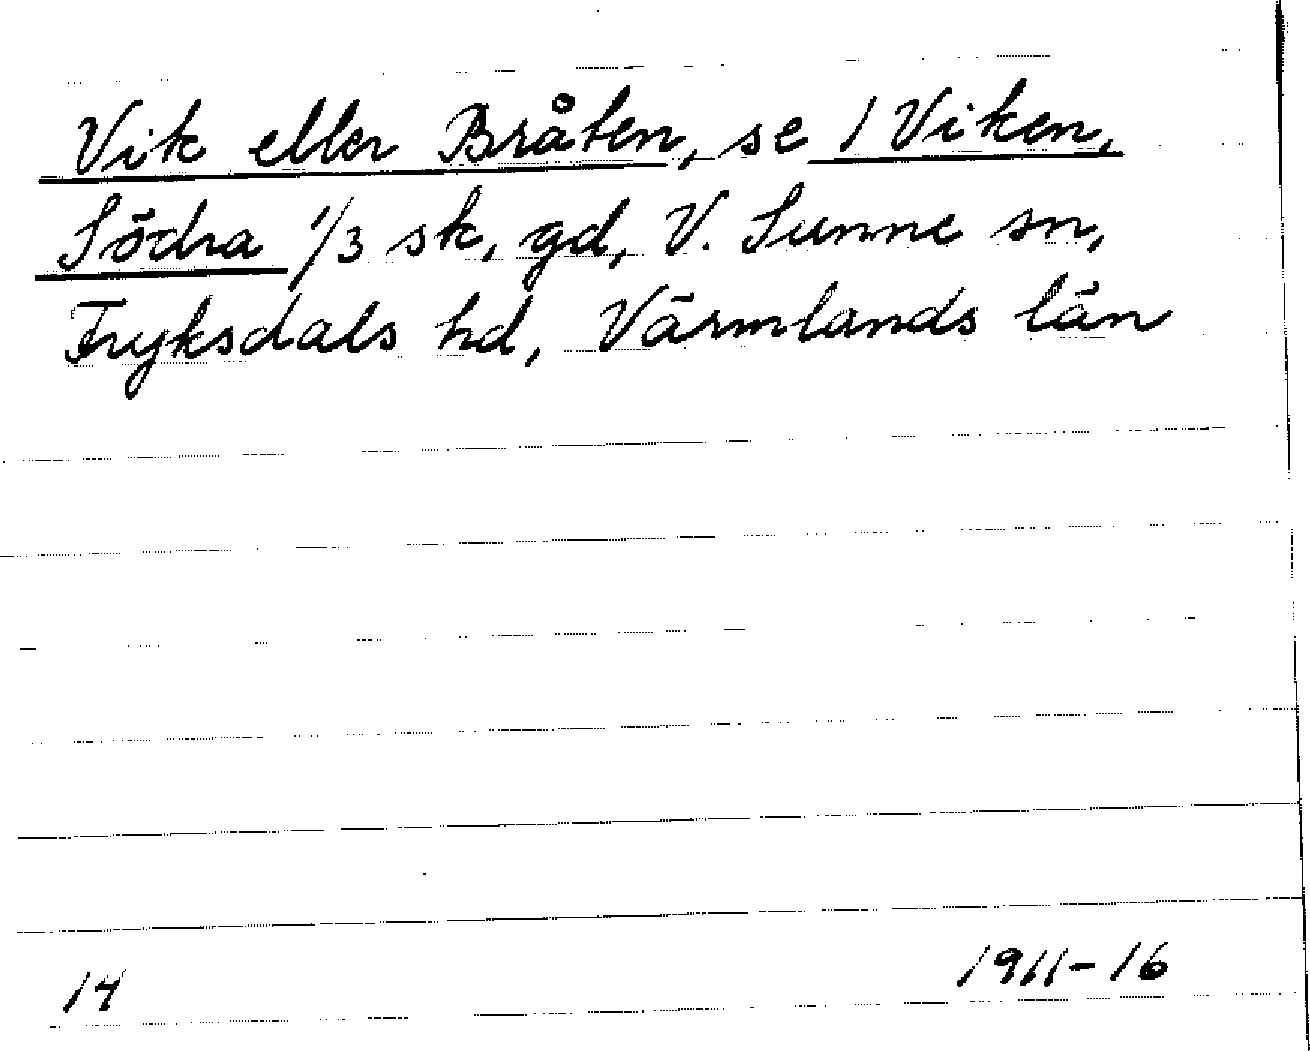 Vik eller Bråten, se 1 Viken,
Södra 1/3 sk, gd, V. Sunne sn,
Fryksdals hd, Värmlands län
14 1911-16